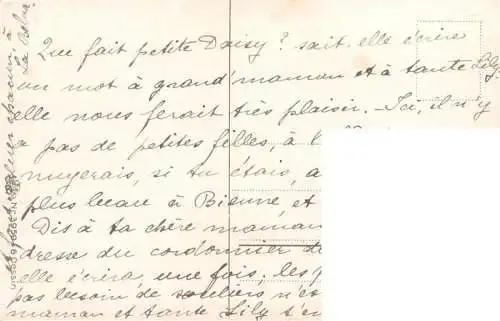 Que fait petite Daisy? sait-elle écrire
un mot à grand'maman et à tante Lily,
elle nous ferait très plaisir. Ici, il n'y
a pas de petites filles, à l'
nuyerais, si tu étais, a
plus beau à Bienne, et
Dis à ta chère maman
dresse du cordonnier de
elle écrira, une fois, les p
pas besoin de souliers n'es
maman et tante Lily t'en